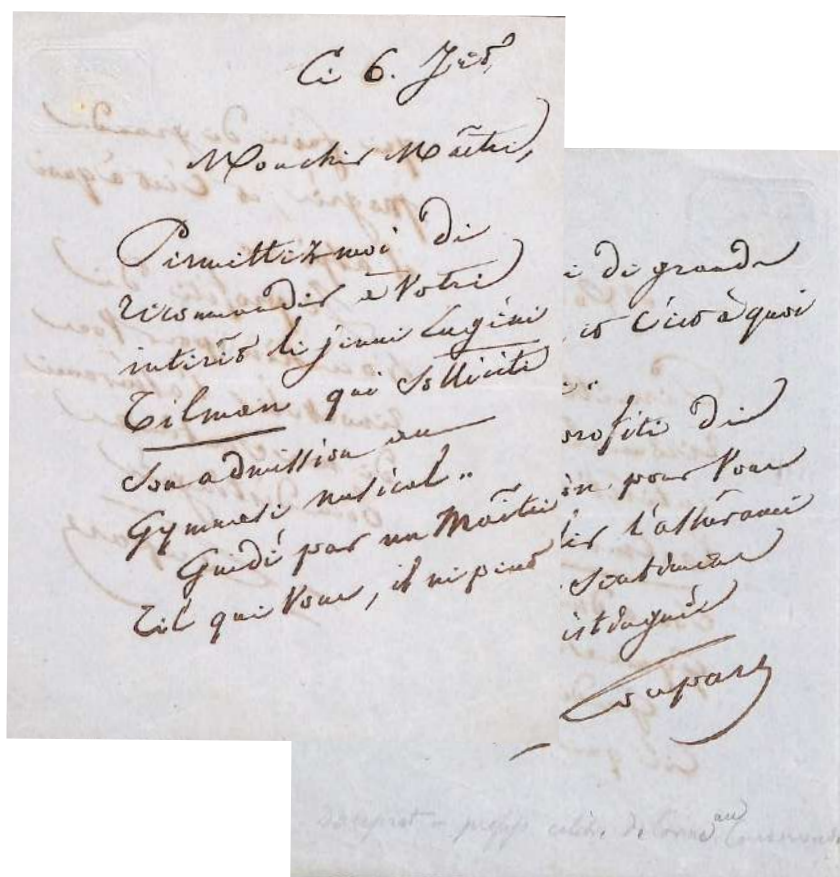 Ce 6.
Mon cher Maître,
Permettez moi de
recommander à Votre
intérêt le jeune Eugène
Tilman qui Sollicite
son admission au
Gymnase musical..
Guidé par un Maître
tel que Vous, il ne peut
de grands
et c'est à quoi
profite de
pour Vous
l'assurance
sentimens
istingués
Dauprat
Dauprat - célèb. de au Conservatoi